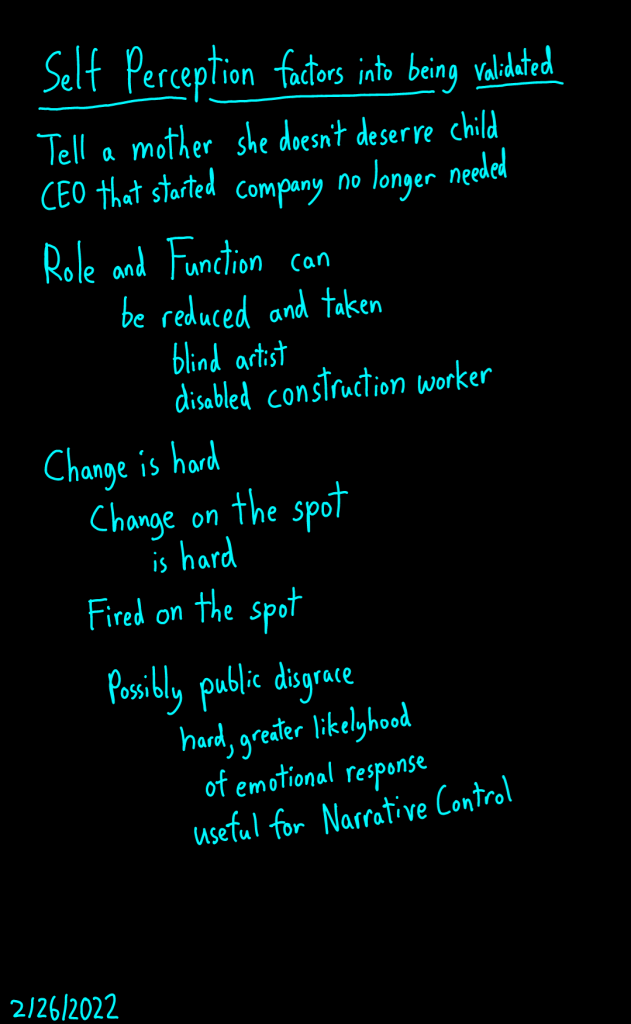 Self Perception factors into being validated
Tell a mother she doesn't deserve child
CEO that started company no longer needed
Role and Function can
be reduced and taken
blind artist
disabled construction worker
Change is hard
Change on the spot
is hard
Fired on the spot
Possibly public disgrace
hard, greater likelyhood
of emotional response
useful for Narrative Control
2/26/2022